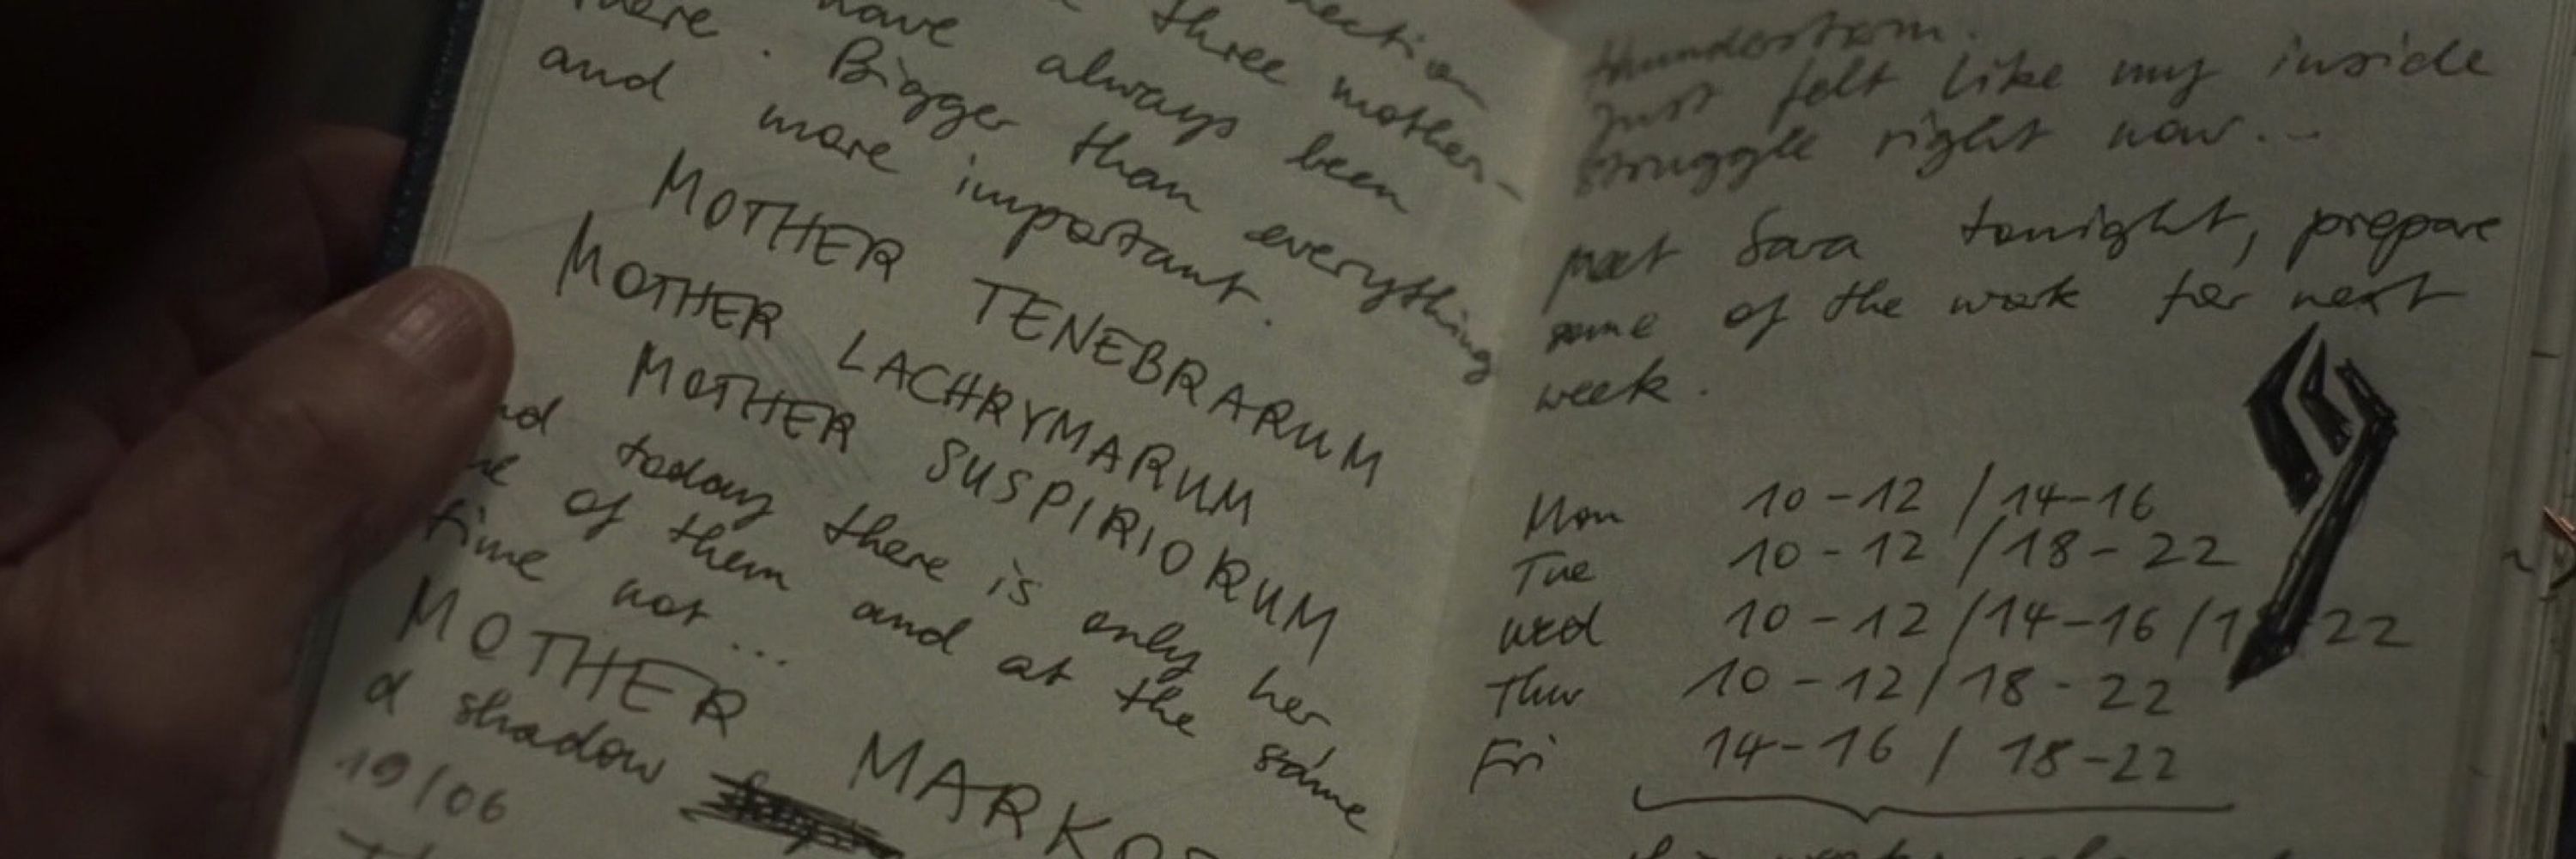 three mother-
have always been
there. Bigger than everything
and more important.
MOTHER TENEBRARUM
MOTHER LACHRYMARUM
MOTHER SUSPIRIORUM
today there is only her
of them and at the same
time not...
MOTHER
a shadow
19/06
thunderstorm.
Just felt like my inside
struggle right now...
meet Sara tonight, prepare
some of the work for next
week.
Mon 10-12 / 14-16
Tue 10-12 / 18-22
Wed 10-12 / 14-16 / 22
Thur 10-12 / 18-22
Fri 14-16 / 18-22